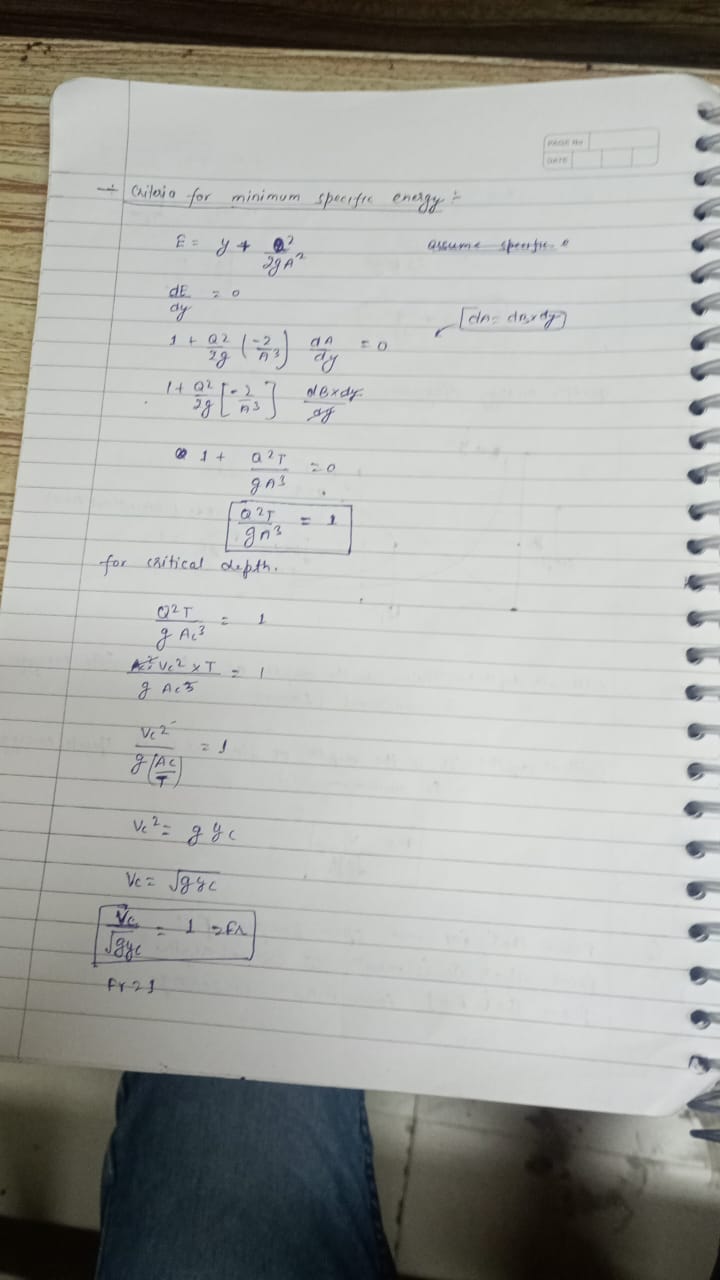 PAGE No
DATE
→ Criteria for minimum specific energy :-
E = y + Q²/2gA² assume specific e
dE/dy = 0
[dA = dB x dy]
1 + Q²/2g (-2/A³) dA/dy = 0
1 + Q²/2g [-2/A³] dB x dy/dy
1 + Q²T/gA³ = 0
Q²T/gA³ = 1
for critical depth.
Q²T/g Ac³ = 1
Vc² x T/g Ac³ = 1
Vc²/g(Ac/T) = 1
Vc² = g yc
Vc = √gyc
Vc/√gyc = 1 = Fr
Fr = 1